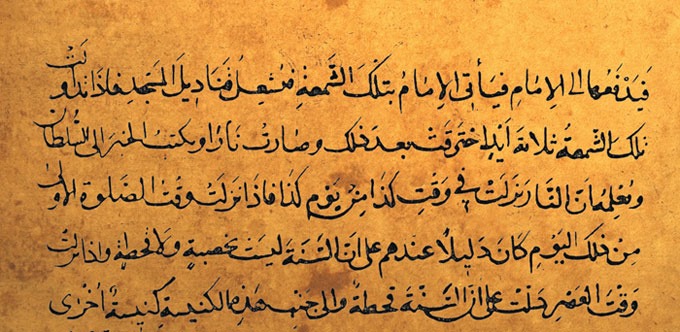 فيدفعها الى الامام فيأتى الإمامُ بتلكَ الشَّمعةِ فيُشعِلُ قناديلَ المسجد فاذا تداولت
تلك الشمعةُ ثلاثة أيدٍ احترقت بعد ذلك وصارت نارًا ويكتب الخبر الى السُّلطان
ويُعلمهُ ان النار نزلت فى وقتِ كذا مِن يَوم كذا فاذا نزلتْ وقتَ الصّلوة الأولى
مِن ذلك اليَوْمِ كان دَليلًا عندهم على انّ السَّنَة ليست بخصبةٍ ولا قحطةٍ واذا نزلت
وقت العَصْرِ دلّتْ على انّ السَّنَة قحطةٌ والى جنب هذه الكنيسةِ كنِيسةٌ أخرى